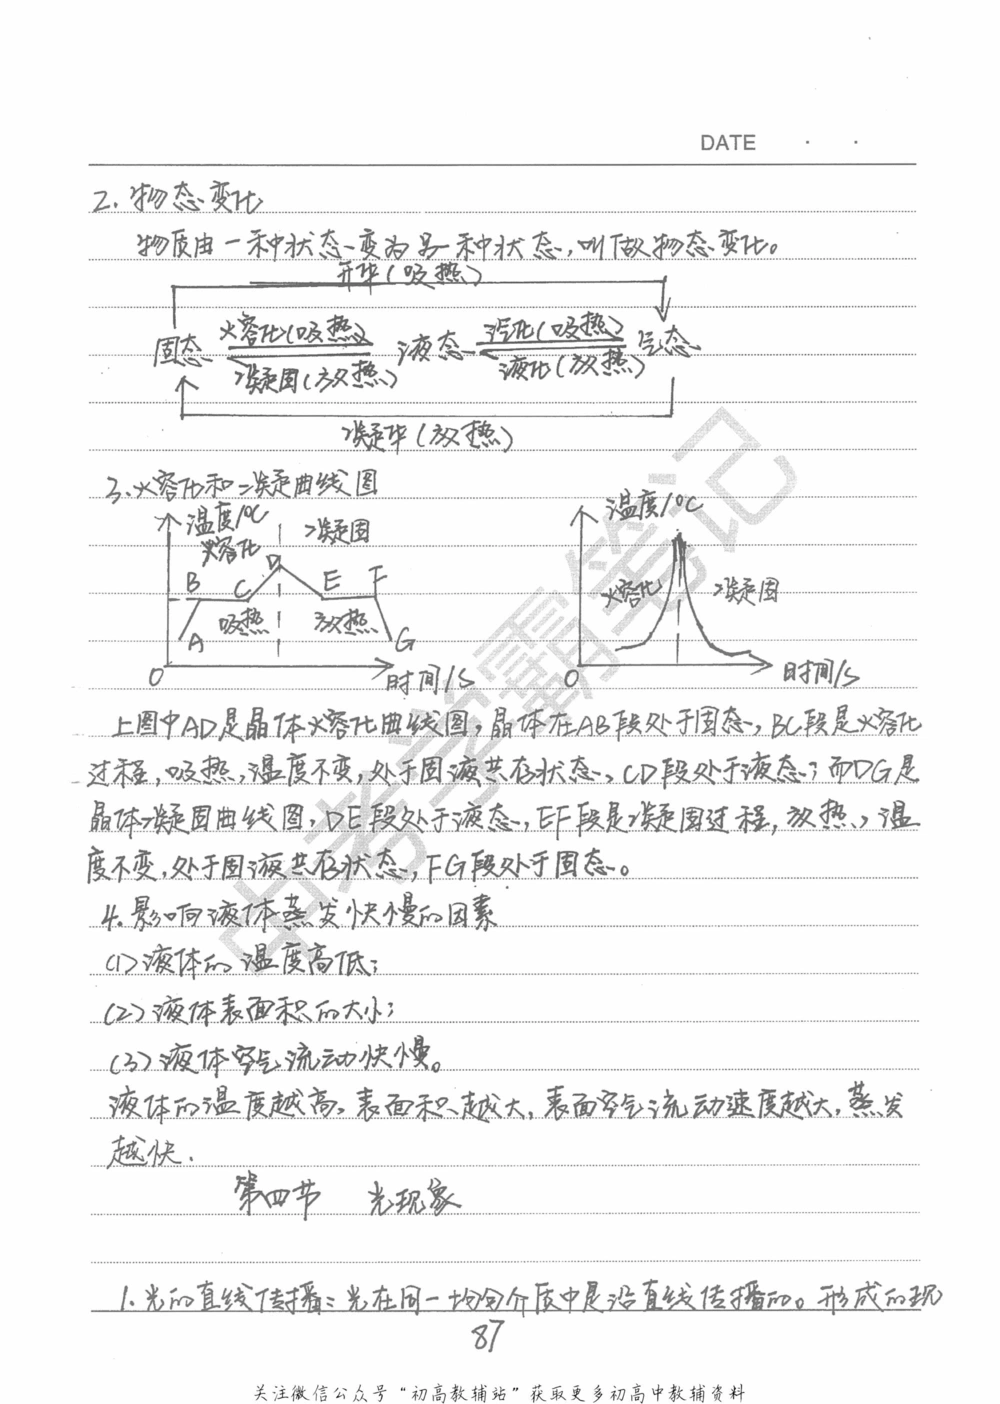 DATE · ·
2. 物态变化
物质由一种状态变为另一种状态,叫做物态变化。
升华(吸热)
固态 熔化(吸热) 液态 汽化(吸热) 气态
凝固(放热) 液化(放热)
凝华(放热)
3. 熔化和凝曲线图
温度/℃ 凝固 温度/℃
熔化 D
B C E F 熔化 凝固
A 吸热 放热 G
0 时间/s 0 时间/s
上图中AD是晶体熔化曲线图,晶体在AB段处于固态,BC段是熔化
过程,吸热,温度不变,处于固液共存状态,CD段处于液态;而DG是
晶体凝固曲线图,DE段处于液态,EF段是凝固过程,放热,温
度不变,处于固液共存状态,FG段处于固态。
4. 影响液体蒸发快慢的因素
(1)液体的温度高低;
(2)液体表面积的大小;
(3)液体空气流动快慢。
液体的温度越高,表面积越大,表面空气流动速度越大,蒸发
越快.
第四节 光现象
1. 光的直线传播:光在同一均匀介质中是沿直线传播的。形成的现
87
中考学霸笔记
关注微信公众号“初高教辅站”获取更多初高中教辅资料